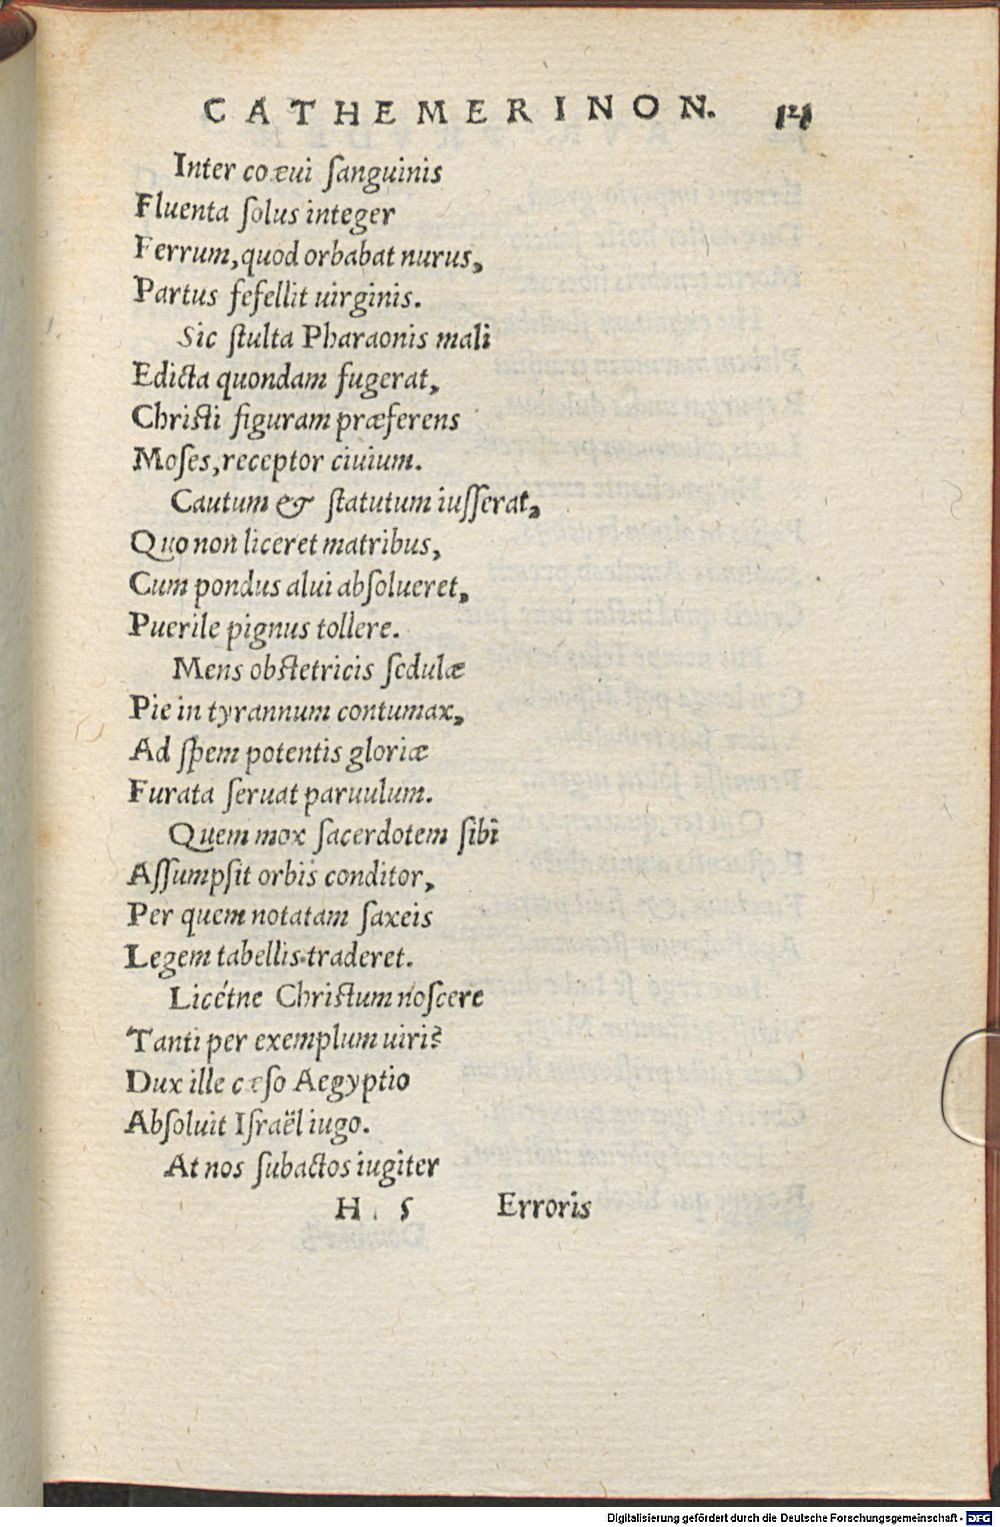 CATHEMERINON. 121
Inter coæui ſanguinis
Fluenta ſolus integer
Ferrum, quod orbabat nurus,
Partus fefellit uirginis.
Sic ſtulta Pharaonis mali
Edicta quondam fugerat,
Chriſti figuram præferens
Moſes, receptor ciuium.
Cautum & ſtatutum iuſſerat,
Quo non liceret matribus,
Cum pondus alui abſolueret,
Puerile pignus tollere.
Mens obſtetricis ſedulæ
Pie in tyrannum contumax,
Ad ſpem potentis gloriæ
Furata ſeruat paruulum.
Quem mox ſacerdotem ſibi
Aſſumpſit orbis conditor,
Per quem notatam ſaxeis
Legem tabellis traderet.
Licétne Chriſtum noſcere
Tanti per exemplum uiri?
Dux ille cæſo Aegyptio
Abſoluit Iſraël iugo.
At nos ſubactos iugiter
H 5 Erroris
Digitalisierung gefördert durch die Deutsche Forschungsgemeinschaft - DFG